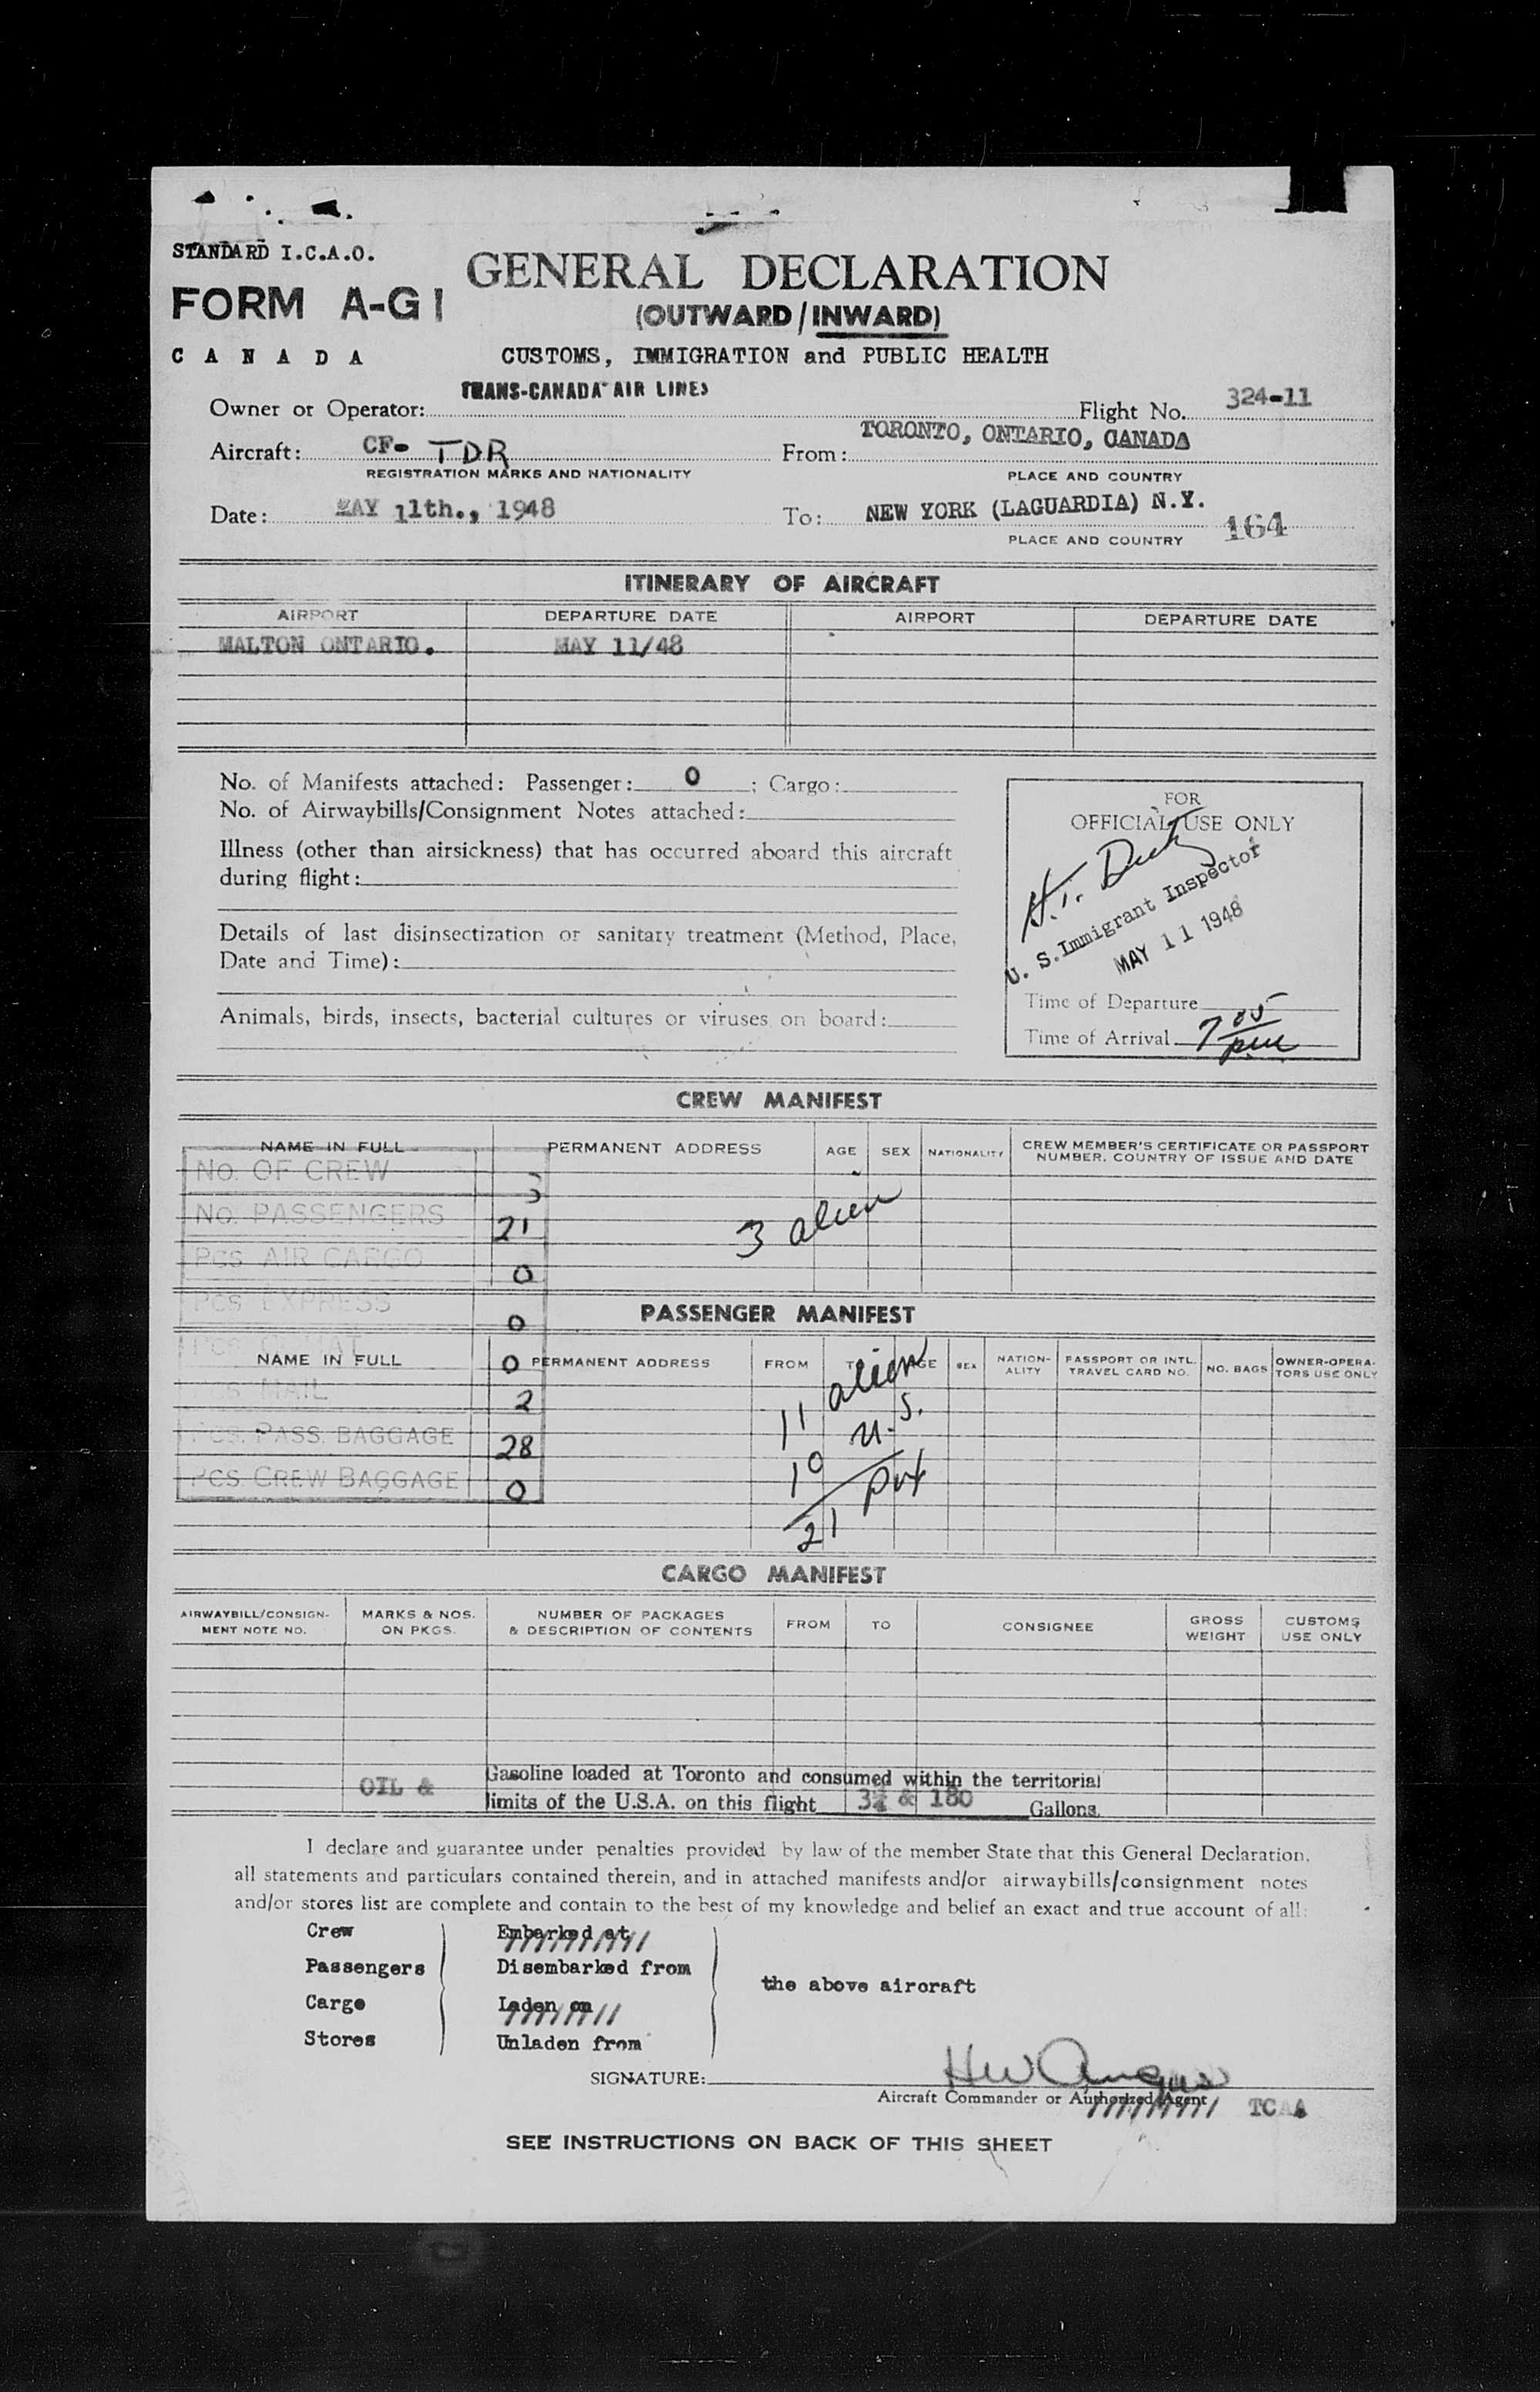 STANDARD I.C.A.O.
FORM A-G1
GENERAL DECLARATION
(OUTWARD/INWARD)
CANADA
CUSTOMS, IMMIGRATION and PUBLIC HEALTH
Owner or Operator: TRANS-CANADA AIR LINES Flight No. 324-11
Aircraft: CF- TDR From: TORONTO, ONTARIO, CANADA
REGISTRATION MARKS AND NATIONALITY PLACE AND COUNTRY
Date: MAY 11th., 1948 To: NEW YORK (LAGUARDIA) N.Y. 164
PLACE AND COUNTRY
ITINERARY OF AIRCRAFT
AIRPORT DEPARTURE DATE AIRPORT DEPARTURE DATE
MALTON ONTARIO. MAY 11/48
No. of Manifests attached: Passenger: 0 ; Cargo:
No. of Airwaybills/Consignment Notes attached:
Illness (other than airsickness) that has occurred aboard this aircraft
during flight:
Details of last disinsectization or sanitary treatment (Method, Place,
Date and Time):
Animals, birds, insects, bacterial cultures or viruses on board:
FOR
OFFICIAL USE ONLY
U. S. Immigrant Inspector
MAY 11 1948
Time of Departure
Time of Arrival 7 05 pm
CREW MANIFEST
NAME IN FULL PERMANENT ADDRESS AGE SEX NATIONALITY CREW MEMBER'S CERTIFICATE OR PASSPORT
NUMBER, COUNTRY OF ISSUE AND DATE
No. OF CREW 3
3 alien
No. PASSENGERS 21
PCS AIR CARGO 0
PCS EXPRESS 0
PASSENGER MANIFEST
NAME IN FULL PERMANENT ADDRESS FROM TO AGE SEX NATION-
ALITY PASSPORT OR INTL.
TRAVEL CARD NO. NO. BAGS OWNER-OPERA-
TORS USE ONLY
0
MAIL 2
PCS. PASS. BAGGAGE 28
PCS CREW BAGGAGE 0
11 alien
10 U.S.
21
CARGO MANIFEST
AIRWAYBILL/CONSIGN-
MENT NOTE NO. MARKS & NOS.
ON PKGS. NUMBER OF PACKAGES
& DESCRIPTION OF CONTENTS FROM TO CONSIGNEE GROSS
WEIGHT CUSTOMS
USE ONLY
OIL & Gasoline loaded at Toronto and consumed within the territorial
limits of the U.S.A. on this flight & 180 Gallons.
I declare and guarantee under penalties provided by law of the member State that this General Declaration,
all statements and particulars contained therein, and in attached manifests and/or airwaybills/consignment notes
and/or stores list are complete and contain to the best of my knowledge and belief an exact and true account of all:
Crew Embarked at
Passengers Disembarked from
the above aircraft
Cargo Laden on
Stores Unladen from
SIGNATURE: HW Angus
Aircraft Commander or Authorized Agent TCAA
SEE INSTRUCTIONS ON BACK OF THIS SHEET